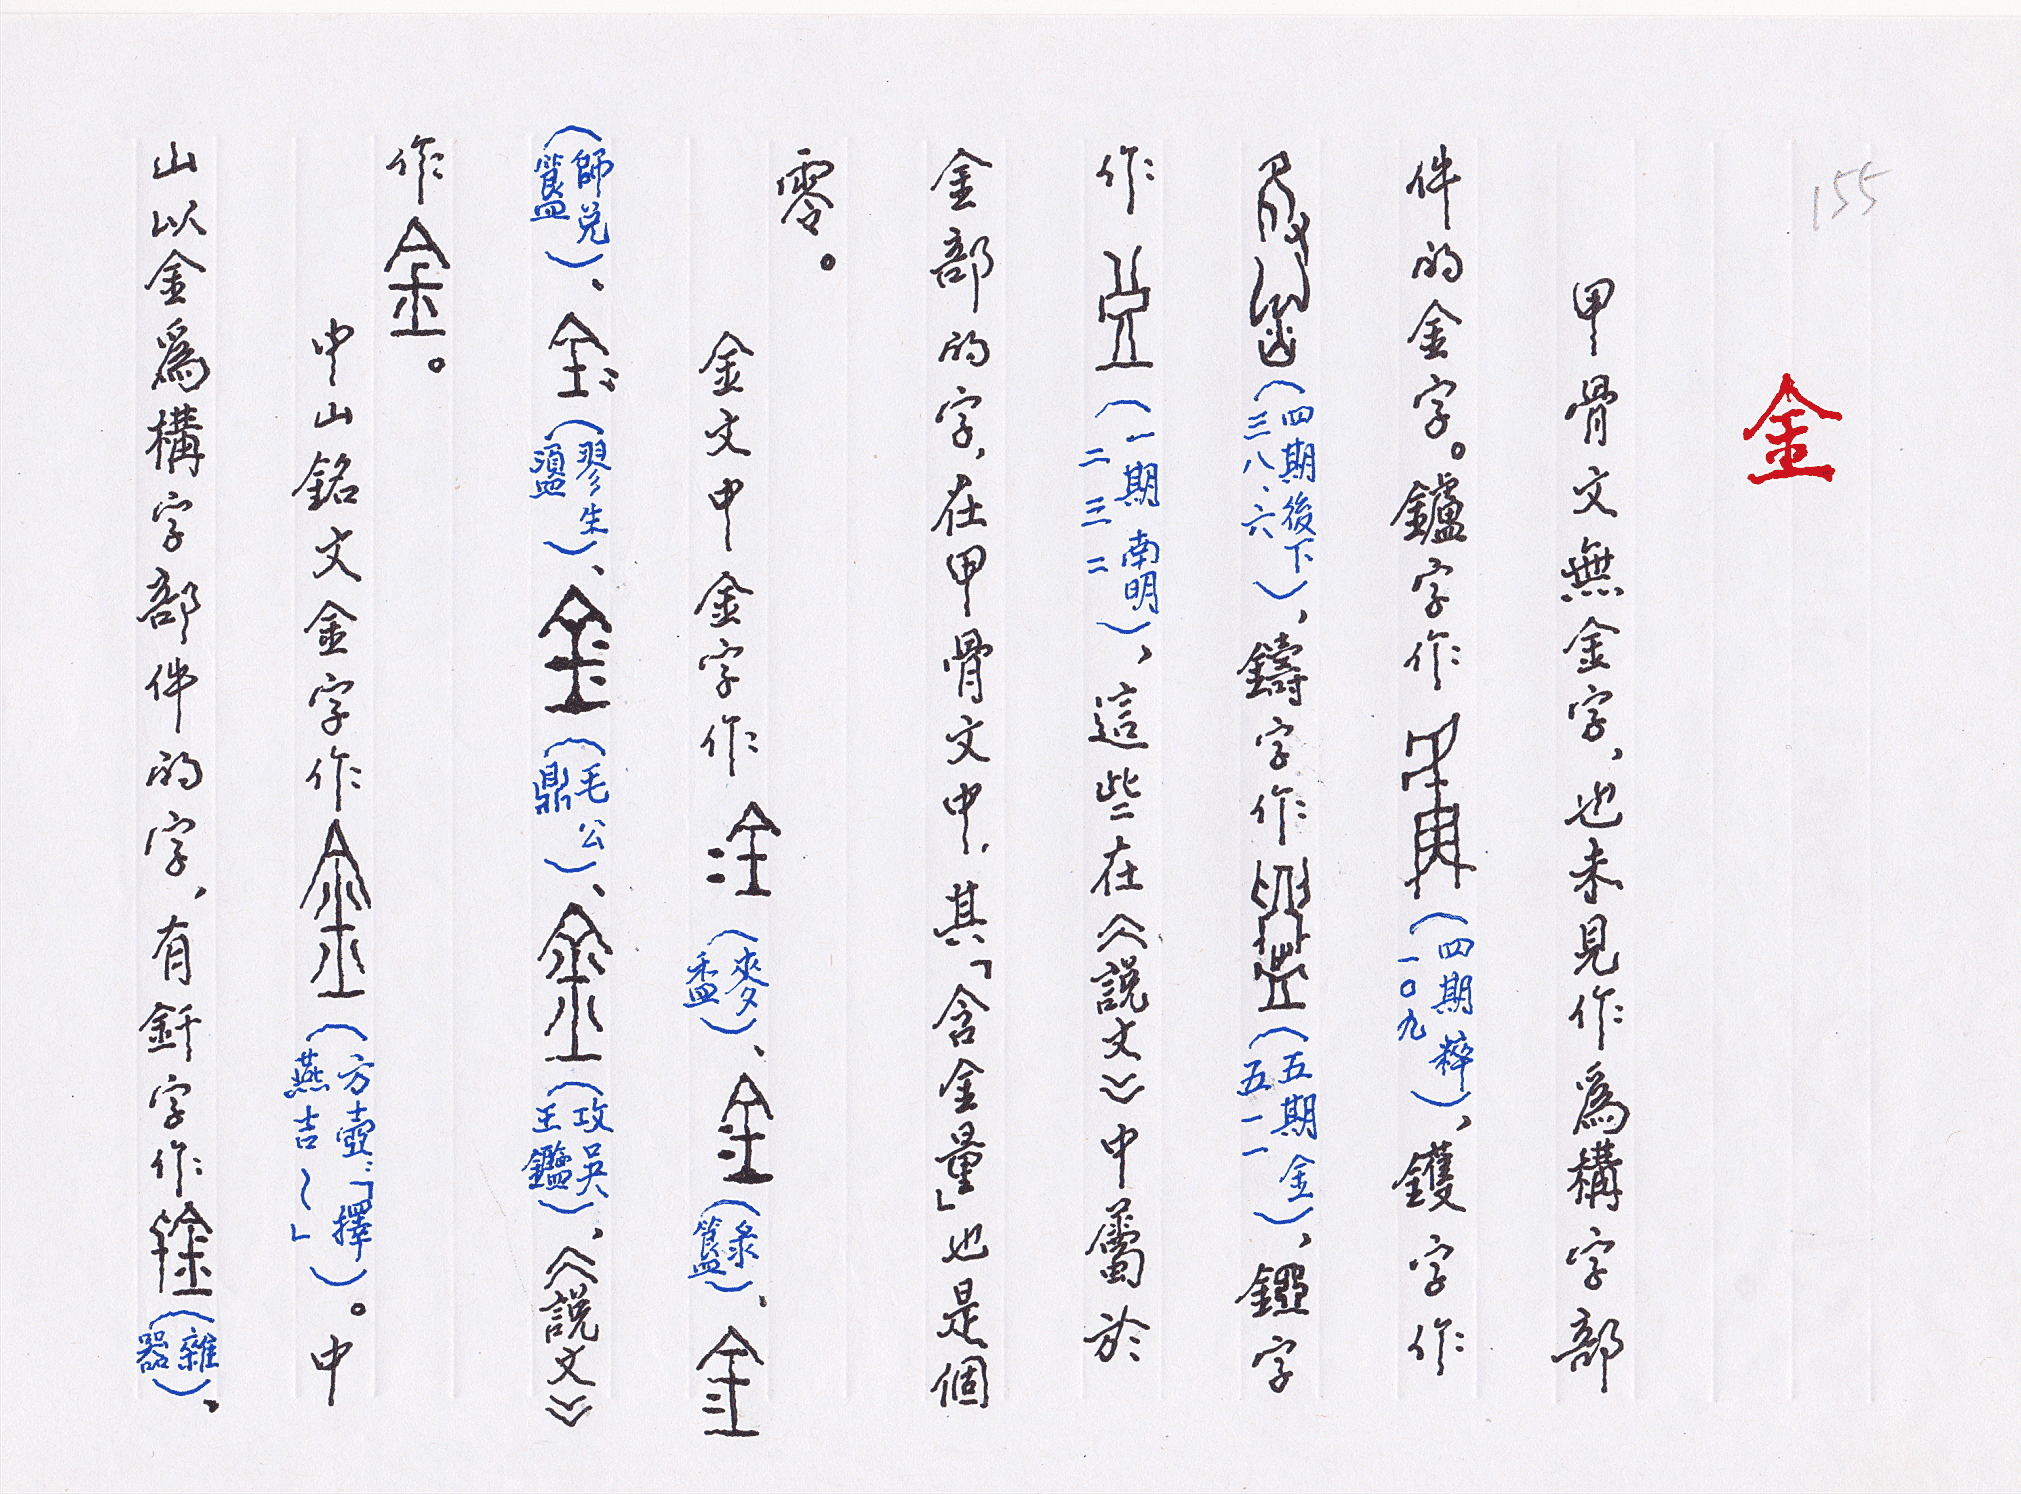 155
金
甲骨文無金字、也未見作為構字部
件的金字。鑪字作(四期粹一〇九)、鑊字作
(四期後下三八、六)、鑄字作(五期金五一一)、鑼字
作(一期南明二三二)、這些在《說文》中屬於
金部的字、在甲骨文中、其「含金量」也是個
零。
金文中金字作(麥盉)、(彔簋)、
(師兌簋)、(翏生盨)、(毛公鼎)、(攻吳王鑑)、《說文》
作。
中山銘文金字作(方壺:「擇燕吉~」)。中
山以金為構字部件的字、有釬字作(雜器)、